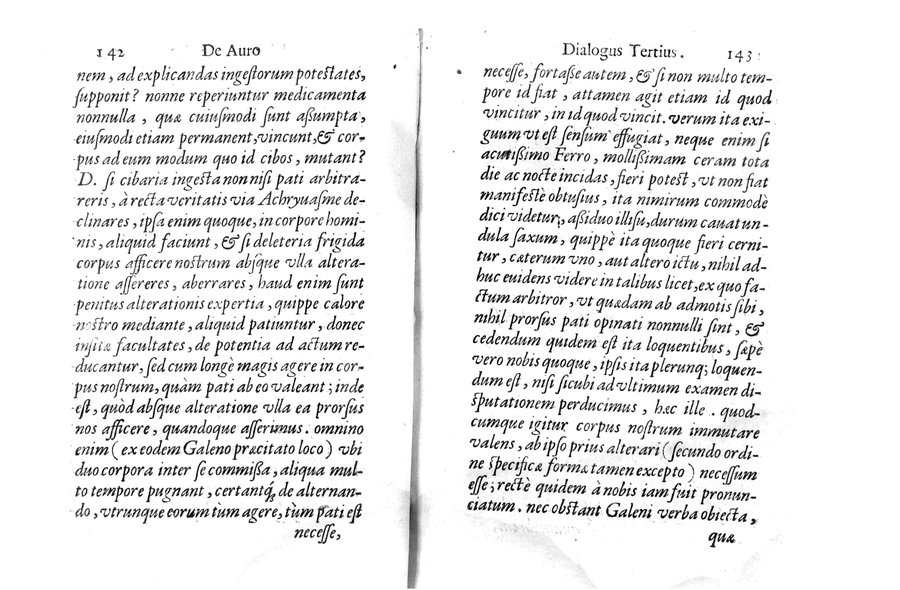 142 De Auro
nem, ad explicandas ingeſtorum poteſtates,
ſupponit? nonne reperiuntur medicamenta
nonnulla, quæ cuiuſmodi ſunt aſſumpta,
eiuſmodi etiam permanent, vincunt, & cor-
pus ad eum modum quo id cibos, mutant?
D. ſi cibaria ingeſta non niſi pati arbitra-
reris, à recta veritatis via Achryuaſme de-
clinares, ipſa enim quoque, in corpore homi-
nis, aliquid faciunt, & ſi deleteria frigida
corpus afficere noſtrum abſque vlla altera-
tione aſſereres, aberrares, haud enim ſunt
penitus alterationis expertia, quippe calore
noſtro mediante, aliquid patiuntur, donec
inſitæ facultates, de potentia ad actum re-
ducantur, ſed cum longè magis agere in cor-
pus noſtrum, quàm pati ab eo valeant; inde
eſt, quòd abſque alteratione vlla ea prorſus
nos afficere, quandoque aſſerimus. omnino
enim (ex eodem Galeno præcitato loco) vbi
duo corpora inter ſe commiſſa, aliqua mul-
to tempore pugnant, certantq́; de alternan-
do, vtrunque eorum tum agere, tum pati eſt
neceſſe,
Dialogus Tertius. 143
neceſſe, fortaſſe autem, & ſi non multo tem-
pore id fiat, attamen agit etiam id quod
vincitur, in id quod vincit. verum ita exi-
guum vt eſt ſenſum effugiat, neque enim ſi
acutiſſimo Ferro, molliſſimam ceram tota
die ac nocte incidas, fieri poteſt, vt non fiat
manifeſtè obtuſius, ita nimirum commodè
dici videtur, aſſiduo illiſu, durum cauat un-
dula ſaxum, quippè ita quoque fieri cerni-
tur, cæterum vno, aut altero ictu, nihil ad-
huc euidens videre in talibus licet, ex quo fa-
ctum arbitror, vt quædam ab admotis ſibi,
nihil prorſus pati opinati nonnulli ſint, &
cedendum quidem eſt ita loquentibus, ſæpè
vero nobis quoque, ipſis ita plerunq; loquen-
dum eſt, niſi ſicubi ad vltimum examen di-
ſputationem perducimus, hæc ille. quod-
cumque igitur corpus noſtrum immutare
valens, ab ipſo prius alterari (ſecundo ordi-
ne ſpecificæ formæ tamen excepto) neceſſum
eſſe; rectè quidem à nobis iam fuit pronun-
ciatum. nec obſtant Galeni verba obiecta,
quæ